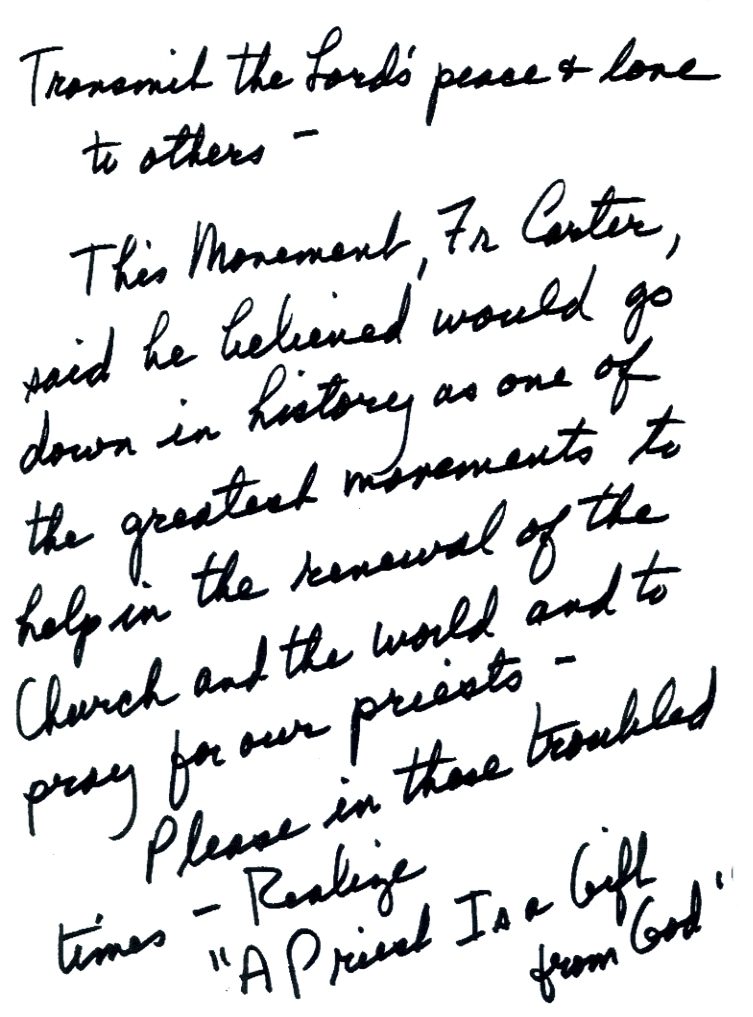 Transmit the Lord's peace & love
to others -
This Movement, Fr Carter,
said he believed would go
down in history as one of
the greatest movements to
help in the renewal of the
Church and the world and to
pray for our priests -
Please in these troubled
times - Realize
"A Priest Is a Gift
from God"